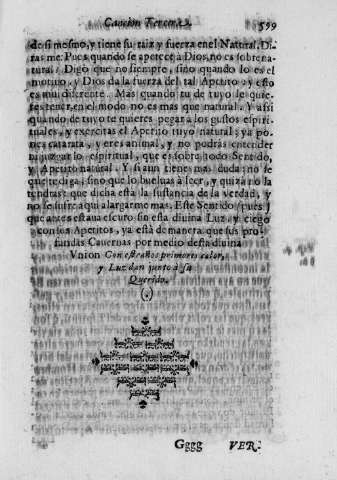 Cancion Tercera. 599
de si mesmo, y tiene su raiz y fuerza en el Natural. Di-
ras me: Pues quando se apetece à Dios, no es sobrena-
tural? Digo que no siempre, sino quando lo es el
motiuo, y Dios da la fuerza del tal Apetito; y esto
es mui diferente. Mas quando tu de tuyo le quie-
res tener, en el modo no es mas que natural. Y assi
quando de tuyo te quieres pegar a los gustos espiri-
tuales, y exercitas el Apetito tuyo natural; ya po-
nes catarata, y eres animal, y no podràs entender
ni juzgar lo espiritual, que es sobre todo Sentido,
y Apetito natural. Y si aun tienes mas duda; no sè
que te diga, sino que lo bueluas à leer, y quizà no la
tendràs: que dicha està la sustancia de la verdad, y
no se sufre aqui a largarme mas. Este Sentido pues
que antes estaua escuro sin esta diuina Luz, y ciego
con los Apetitos, ya està de manera que sus pro-
fundas Cauernas por medio desta diuina
Vnion Con estraños primores calor,
y Luz dan junto à su
Querido.
Gggg VER-